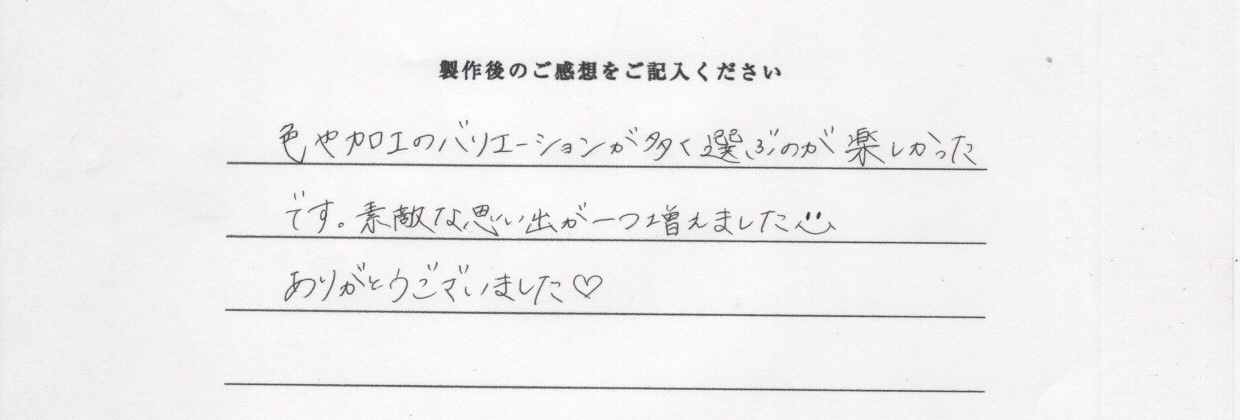 製作後のご感想をご記入ください
色や加工のバリエーションが多く選ぶのが楽しかった
です。素敵な思い出が一つ増えました
ありがとうございました♡